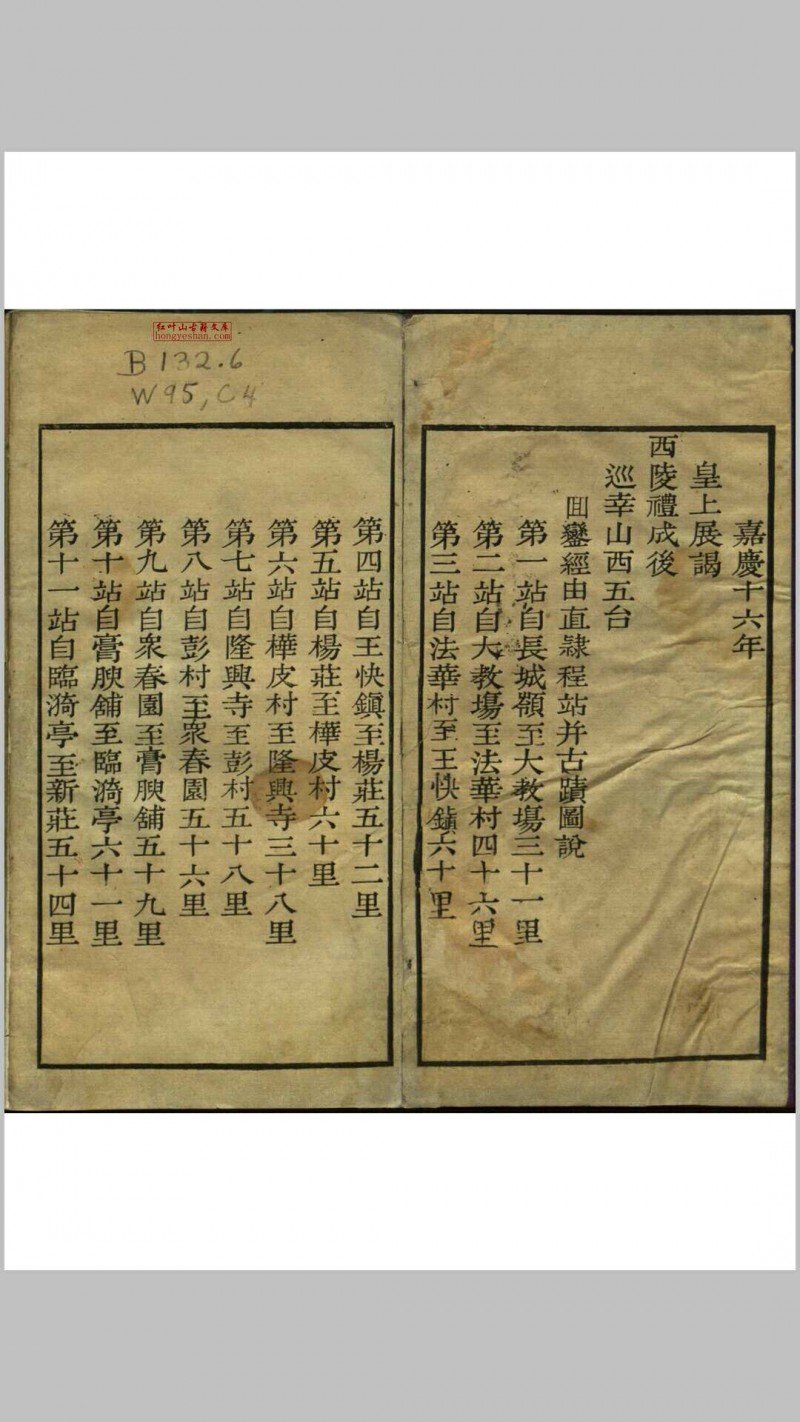 红叶山古籍文库
hongyeshan.com
B 132.6
W95, C4
嘉慶十六年
皇上展謁
西陵禮成後
巡幸山西五台
囬鑾經由直隷程站并古蹟圖說
第一站自長城嶺至大教場三十一里
第二站自大教場至法華村四十六里
第三站自法華村至王快鎮六十里
第四站自王快鎮至楊莊五十二里
第五站自楊莊至樺皮村六十里
第六站自樺皮村至隆興寺三十八里
第七站自隆興寺至彭村五十八里
第八站自彭村至衆春園五十六里
第九站自衆春園至膏腴舖五十九里
第十站自膏腴舖至臨漪亭六十一里
第十一站自臨漪亭至新莊五十四里